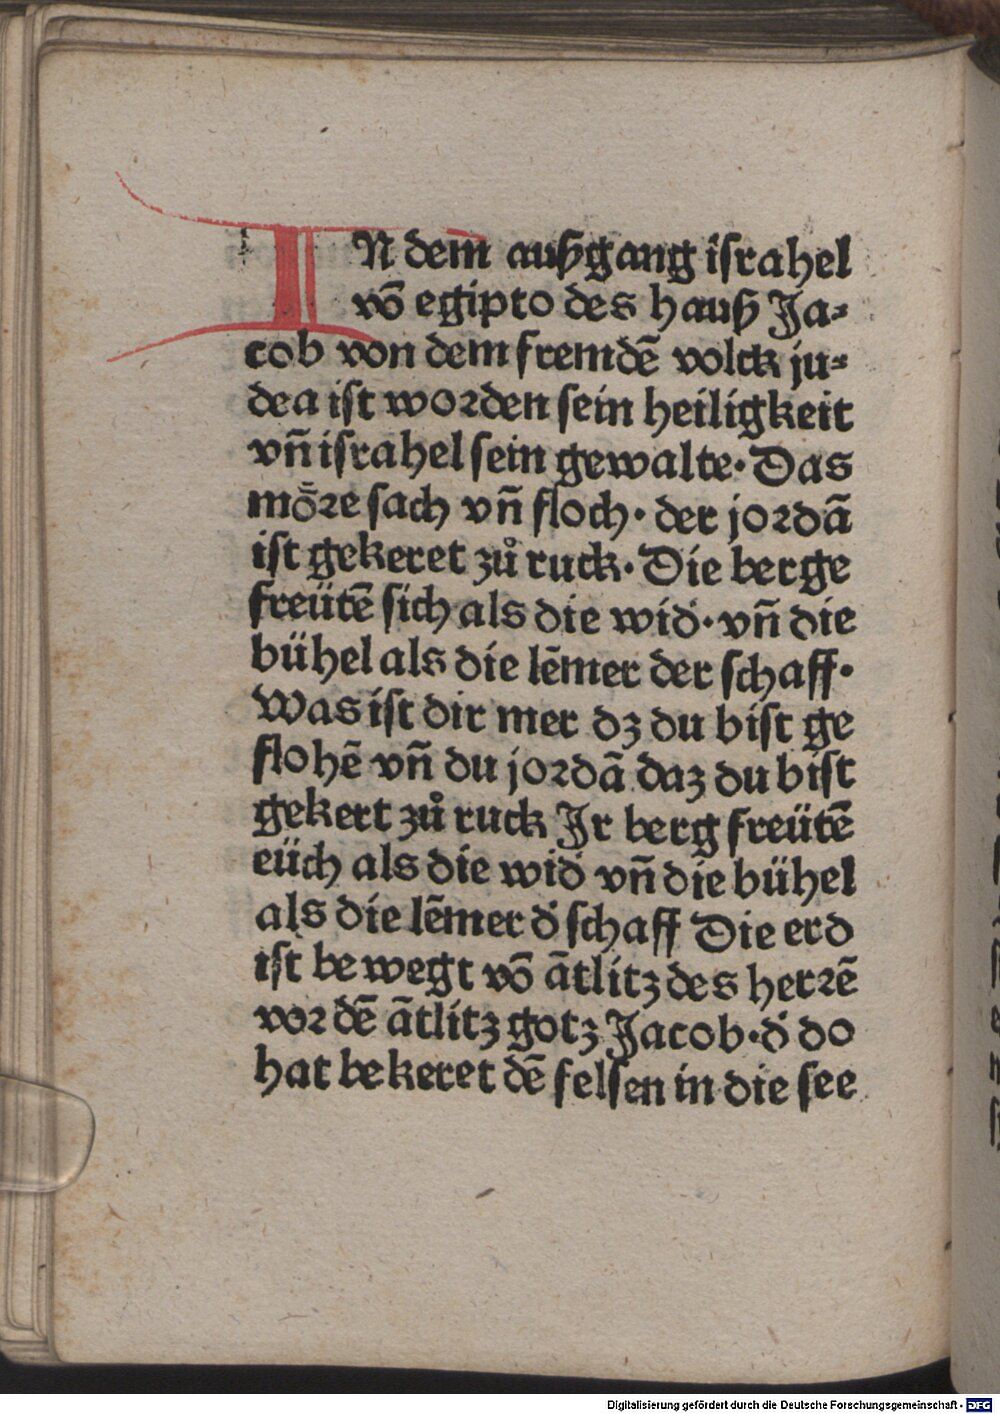 IN dem außgang israhel
vō egipto des hauß Ja⸗
cob von dem fremdē volck ju⸗
dea ist worden sein heiligkeit
vn̄ israhel sein gewalte· Das
moͤre sach vn̄ floch· der jordā
ist gekeret zuͦ ruck· Die berge
freütē sich als die wid̾· vn̄ die
bühel als die lēmer der schaff·
Was ist dir mer dz du bist ge
flohē vn̄ du jordā daz du bist
gekert zuͦ ruck Jr berg freütē
eüch als die wid̾ vn̄ die bühel
als die lēmer d̾ schaff Die erd
ist bewegt vō ātlitz des herrē
vor dē ātlitz gotz Jacob· d̾ do
hat bekeret dē felsen in die see
Digitalisierung gefördert durch die Deutsche Forschungsgemeinschaft - DFG